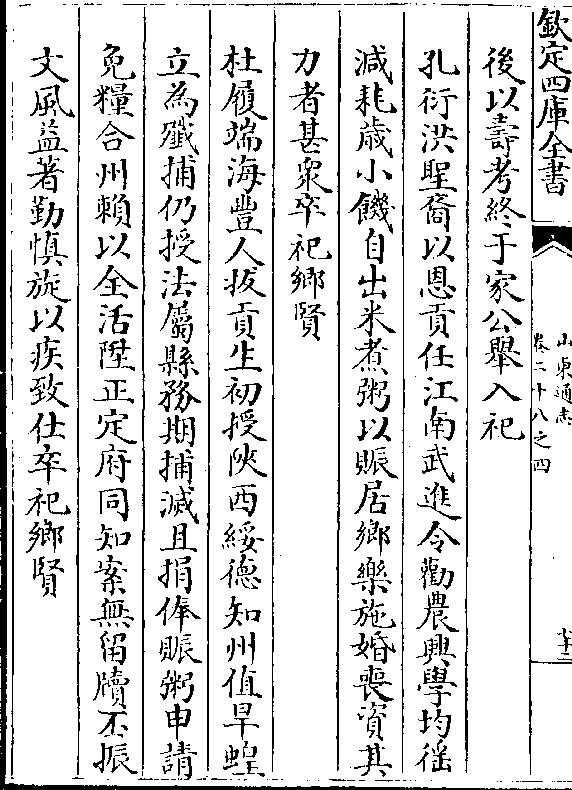 欽定四庫全書
山東通志
卷二十八之四
後以壽考終于家公舉入祀
孔衍洪聖裔以恩貢任江南武進令勸農興學均徭
減耗歲小饑自出米煮粥以賑居鄉樂施婚喪資其
力者甚衆卒祀鄉賢
杜履端海豐人拔貢生初授陜西綏德知州值旱蝗
立為殲捕仍授法屬縣務期捕滅且捐俸賑粥申請
免糧合州賴以全活陞正定府同知案無留牘丕振
文風益著勤慎旋以疾致仕卒祀鄉賢